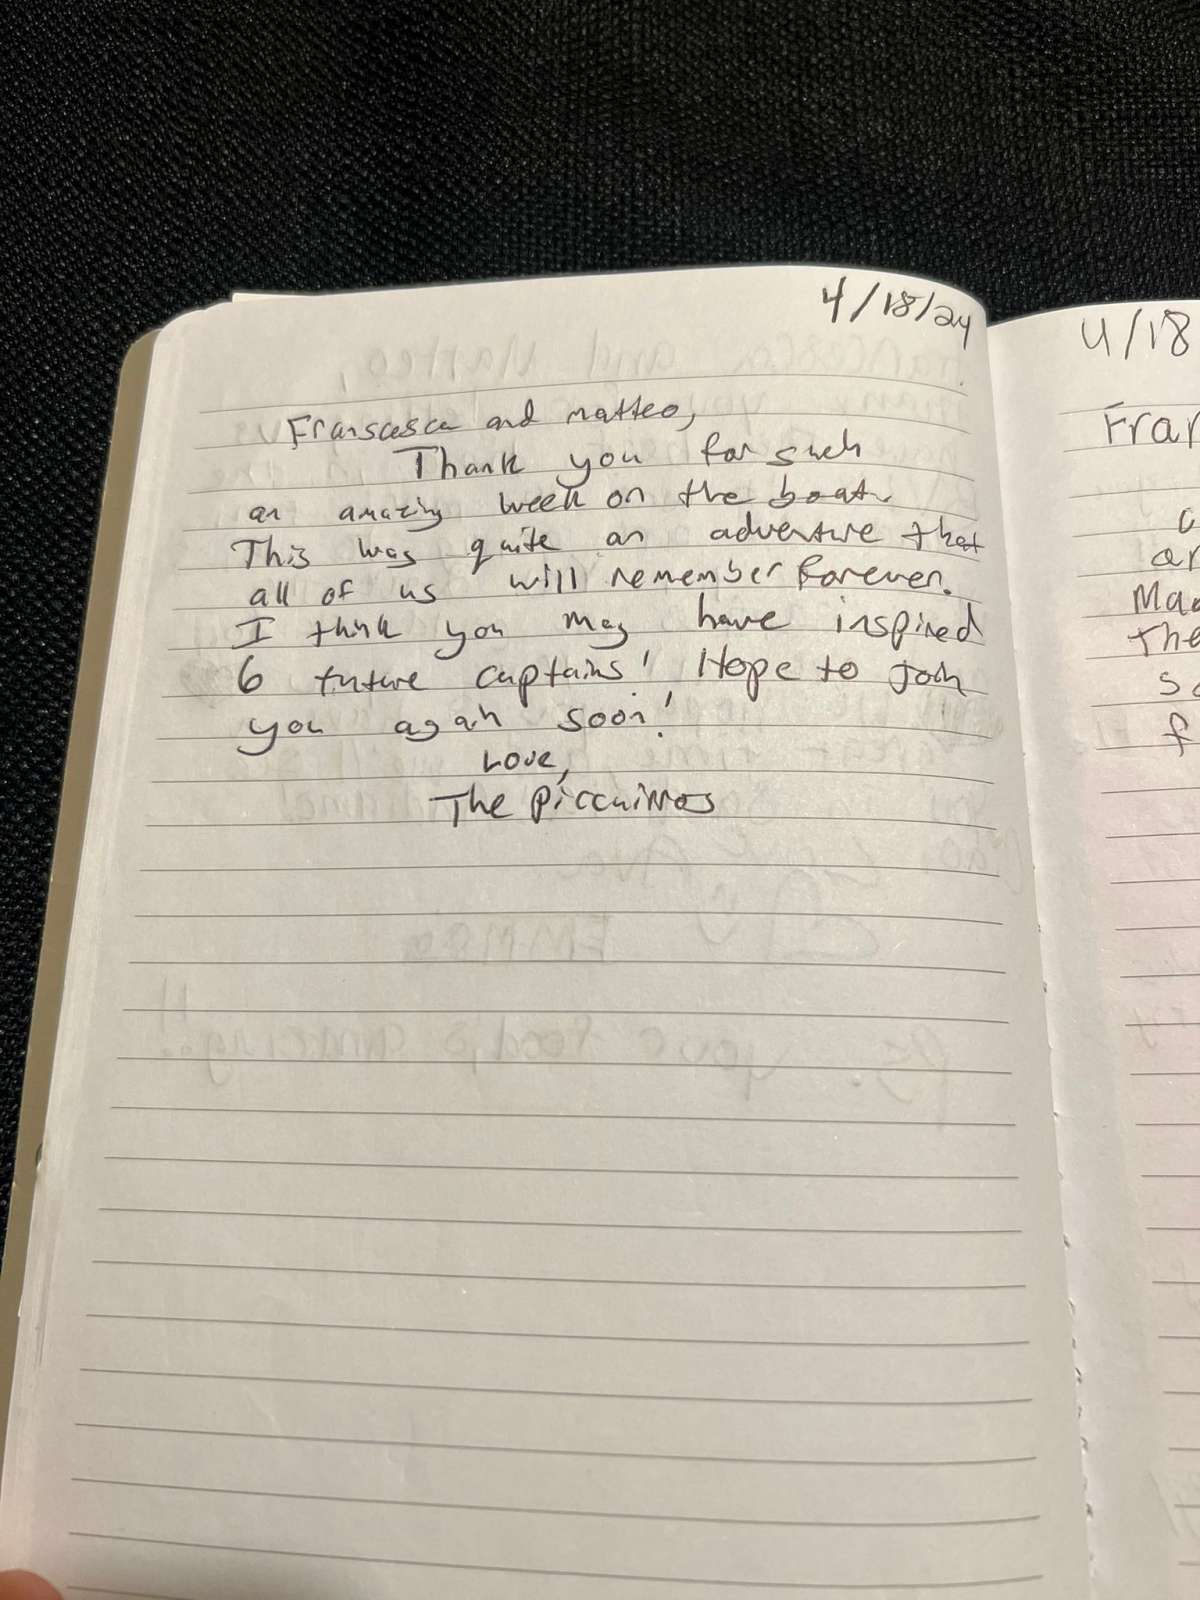 4/18/24
Franscesca and matteo,
Thank you for such
an amazing week on the boat.
This was quite an adventure that
all of us will remember forever.
I think you may have inspired
6 future captains! Hope to join
you again soon!
Love,
The Piccuirros
4/18
Frar
ar
Ma
the
so
f